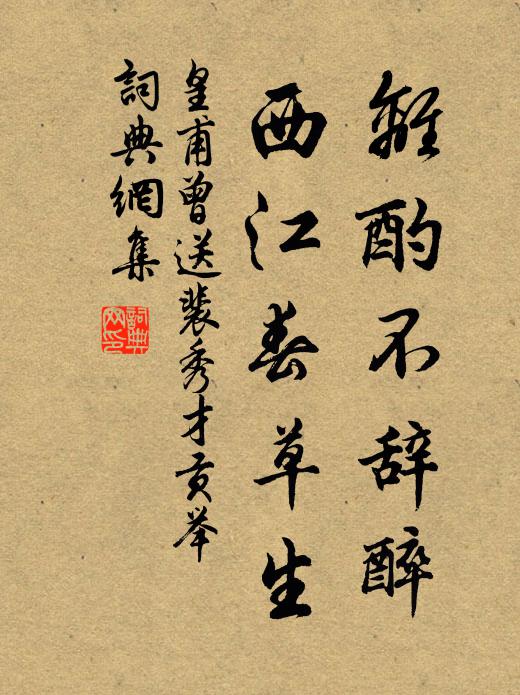 離酌不辞醉
西江春草生
皇甫曾送裴秀才贡举
詞典網集
詞典网印